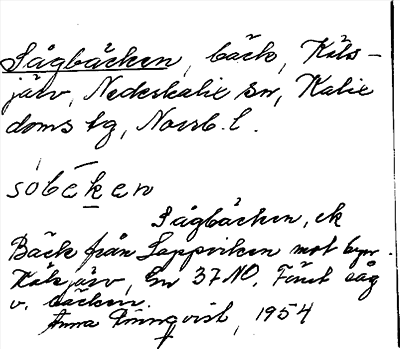 Sågbäcken, bäck, Käls-
järv, Nederkalix sn, Kalix
doms tg, Norrb. l.
sobèken
Sågbäcken, ek
Bäck från Lappviken mot byn.
Kälsjärv, Gn 37 NO. Förut såg
v. bäcken.
Anna Rönnqvist, 1954